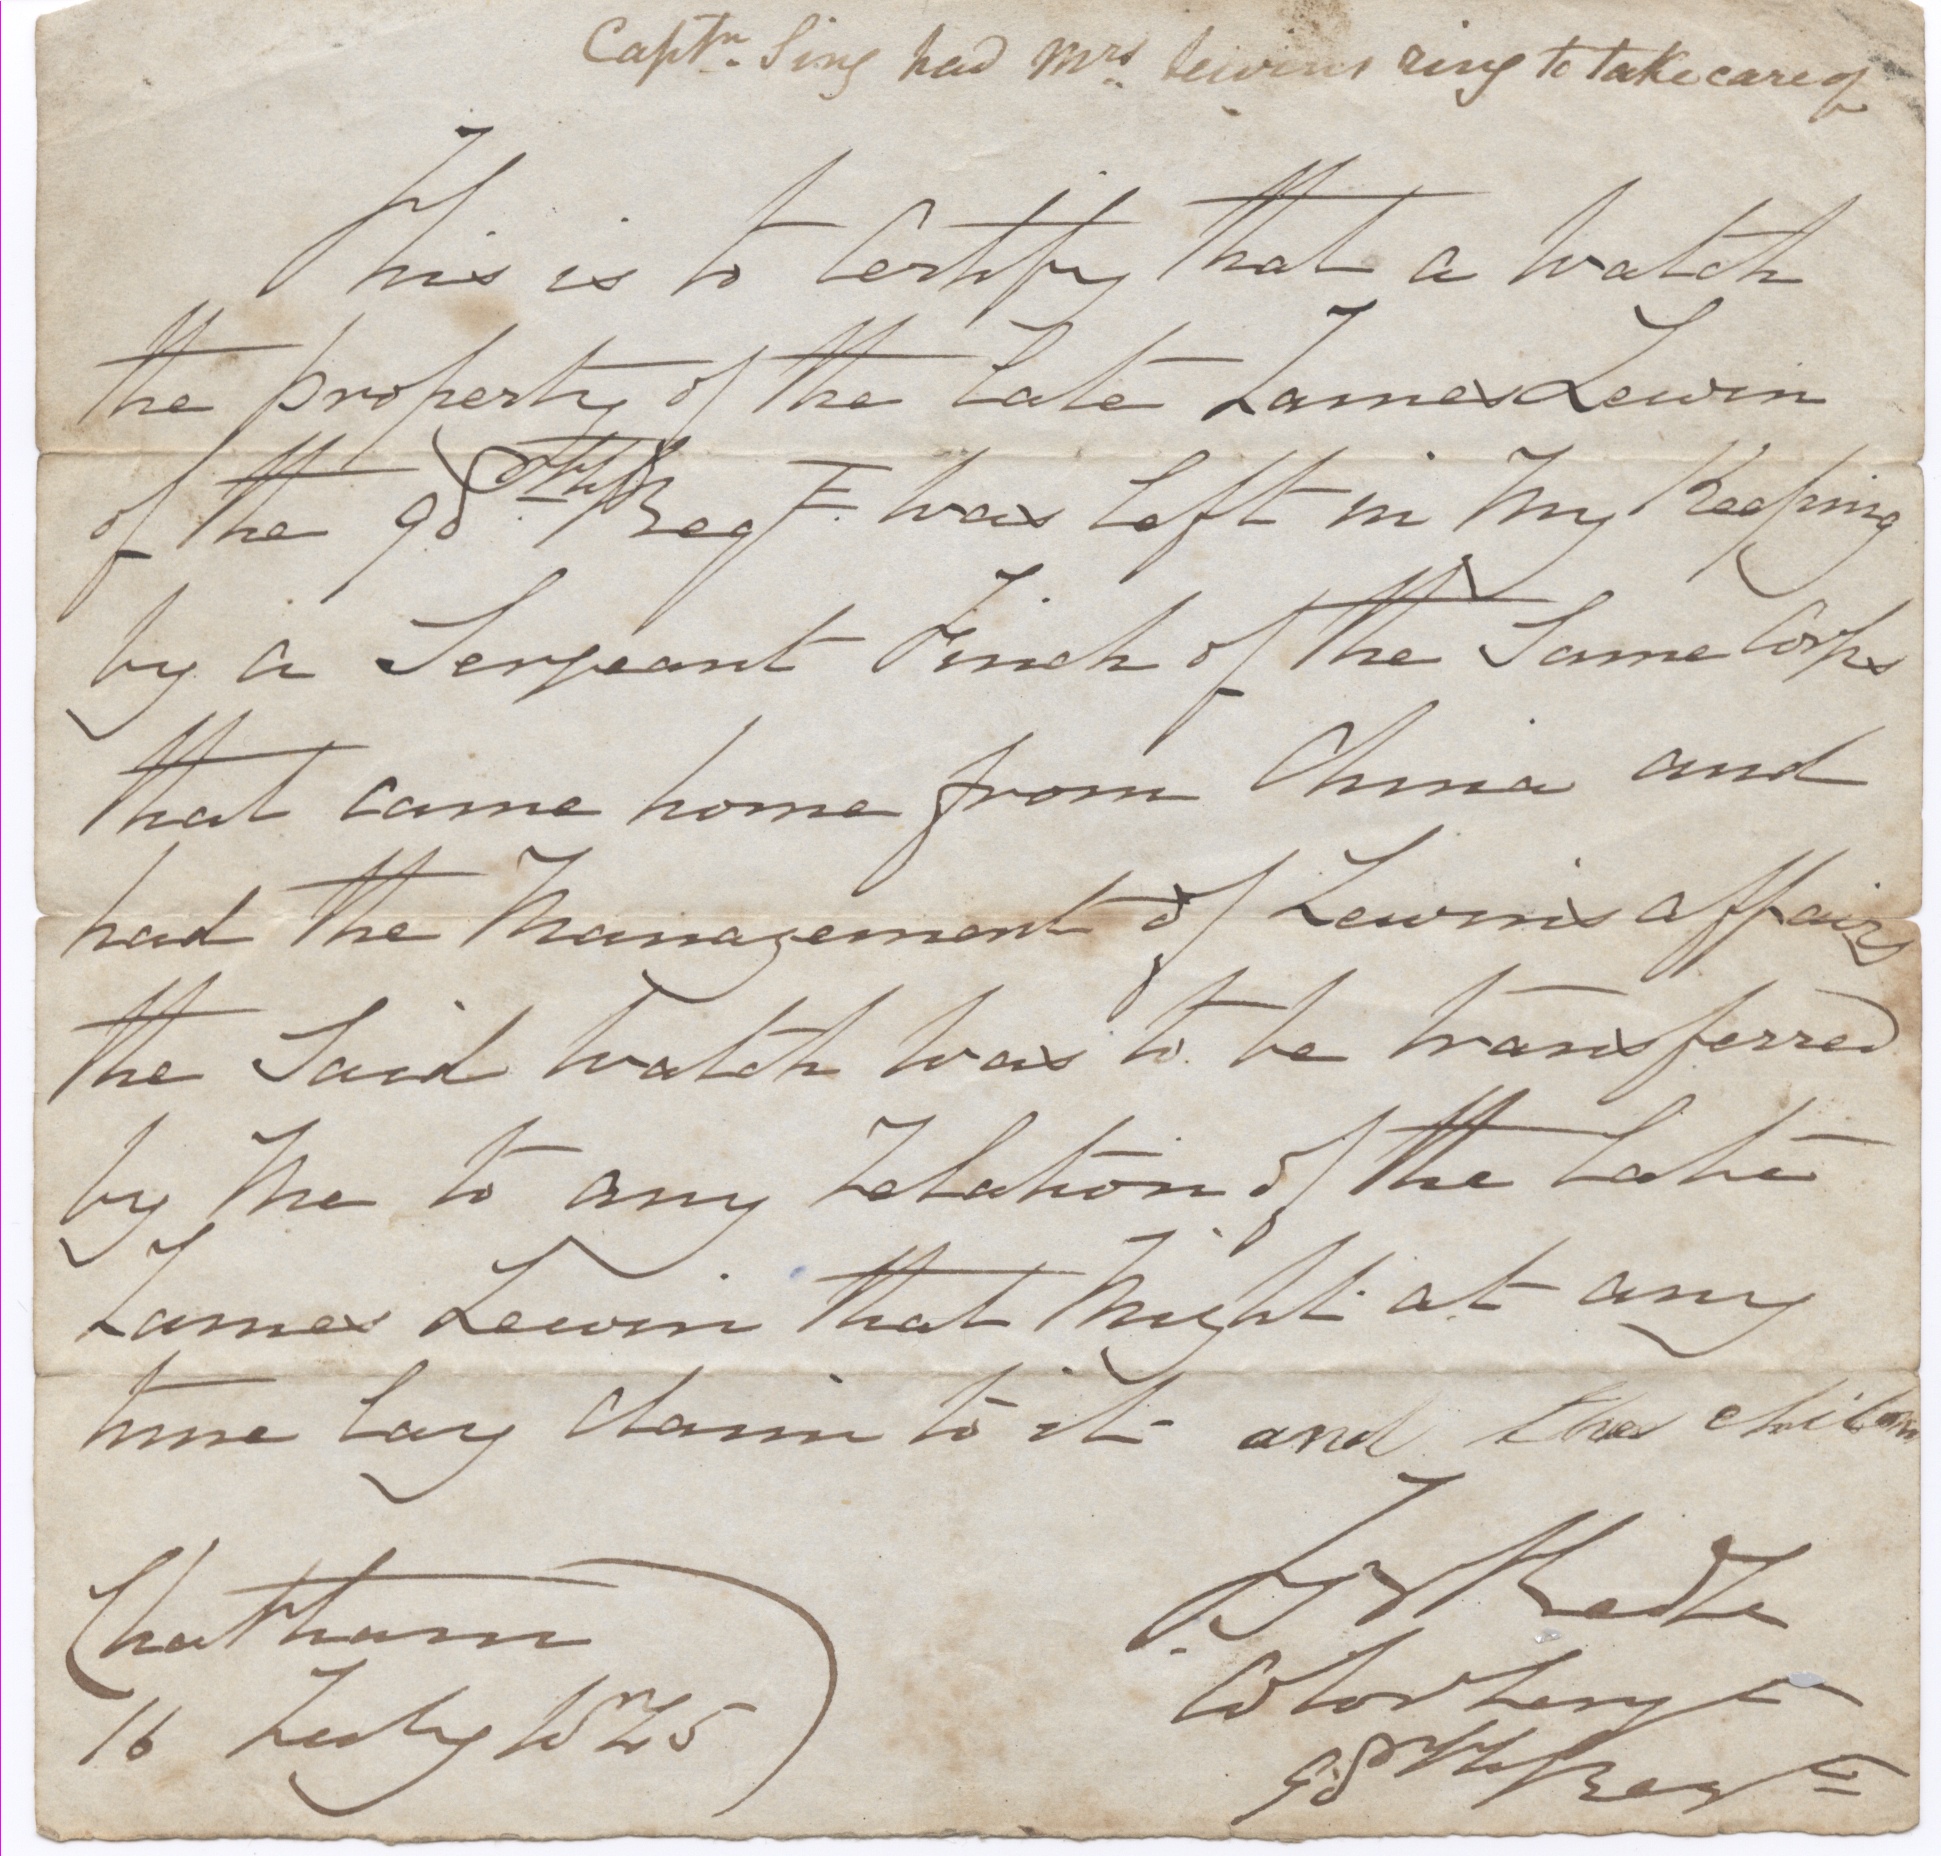 Captn. Sing had Mrs. Lewins ring to take care of
This is to Certify that a Watch
the property of the Late James Lewin
of the 98th Regt. Was Left in My Keeping
by a Sergeant Finch of the Same Corps
that came home from China and
had the Management of Lewin's affairs
the Said Watch Was to be transferred
by Me to any Relation of the Late
James Lewin that Might at any
time Lay Claim to it and the
Chatham
16 July 1845
Color Sergt
98th Regt